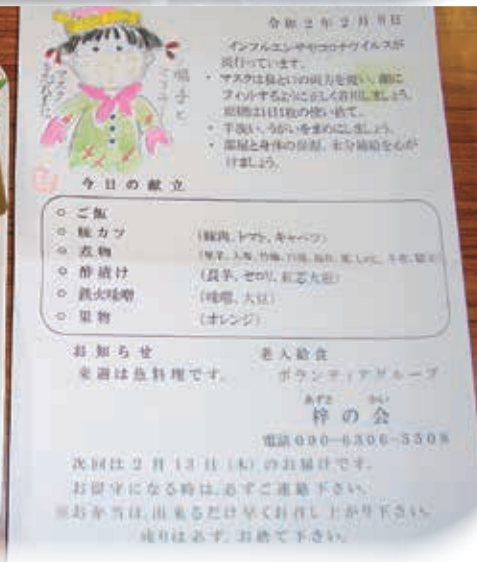 令和2年2月8日
帽子と
マスク
インフルエンザやコロナウイルスが
流行っています。
・マスクは鼻と口の両方を覆い、顔に
フィットするように正しく着用しましょう。
原則は1日1枚の使い捨て。
・手洗い、うがいをまめにしましょう。
・部屋と身体の保湿、水分補給を心が
けましょう。
今日の献立
○ ご飯
○ 豚カツ (豚肉、トマト、キャベツ)
○ 煮物
○ 酢漬け (長芋、セロリ、紅芯大根)
○ 鉄火味噌 (味噌、大豆)
○ 果物 (オレンジ)
お知らせ
来週は魚料理です。
老人給食
ボランティアグループ
あずさ かい
梓の会
電話090-6306-5508
次回は2月13日(木)のお届けです。
お留守になる時は、必ずご連絡下さい。
※お弁当は、出来るだけ早くお召し上がり下さい。
残りは必ず、お捨て下さい。